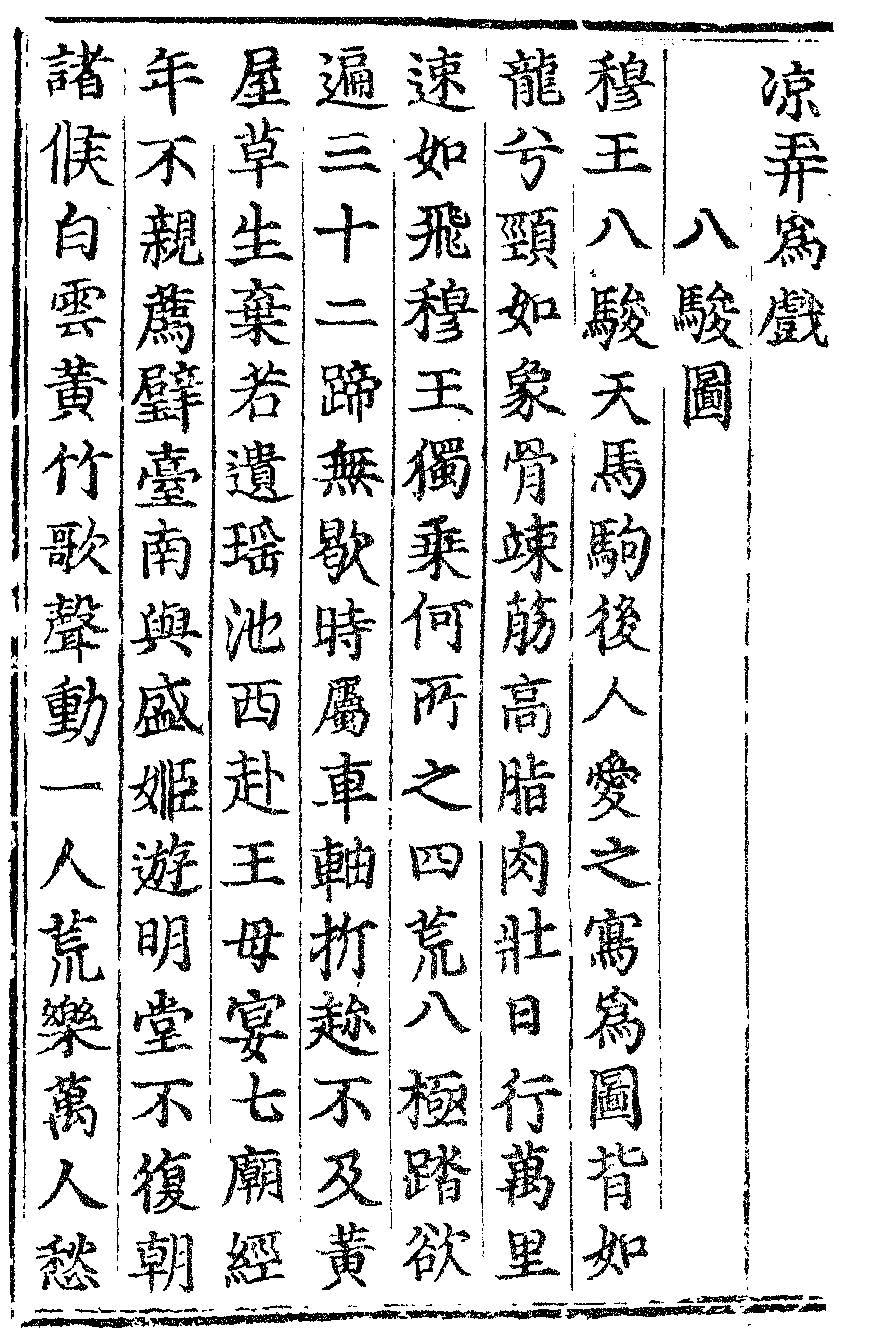 凉弄為戲
八駿圖
穆王八駿天馬駒後人愛之寫為圖背如
龍兮頸如象骨竦筋高脂肉壯日行萬里
速如飛穆王獨乗何所之四荒八極踏欲
遍三十二蹄無歇時屬車軸折趂不及黃
屋草生棄若遺瑶池西赴王母宴七廟經
年不親薦璧臺南與盛姬遊明堂不復朝
諸侯白雲黃竹歌聲動一人荒樂萬人愁